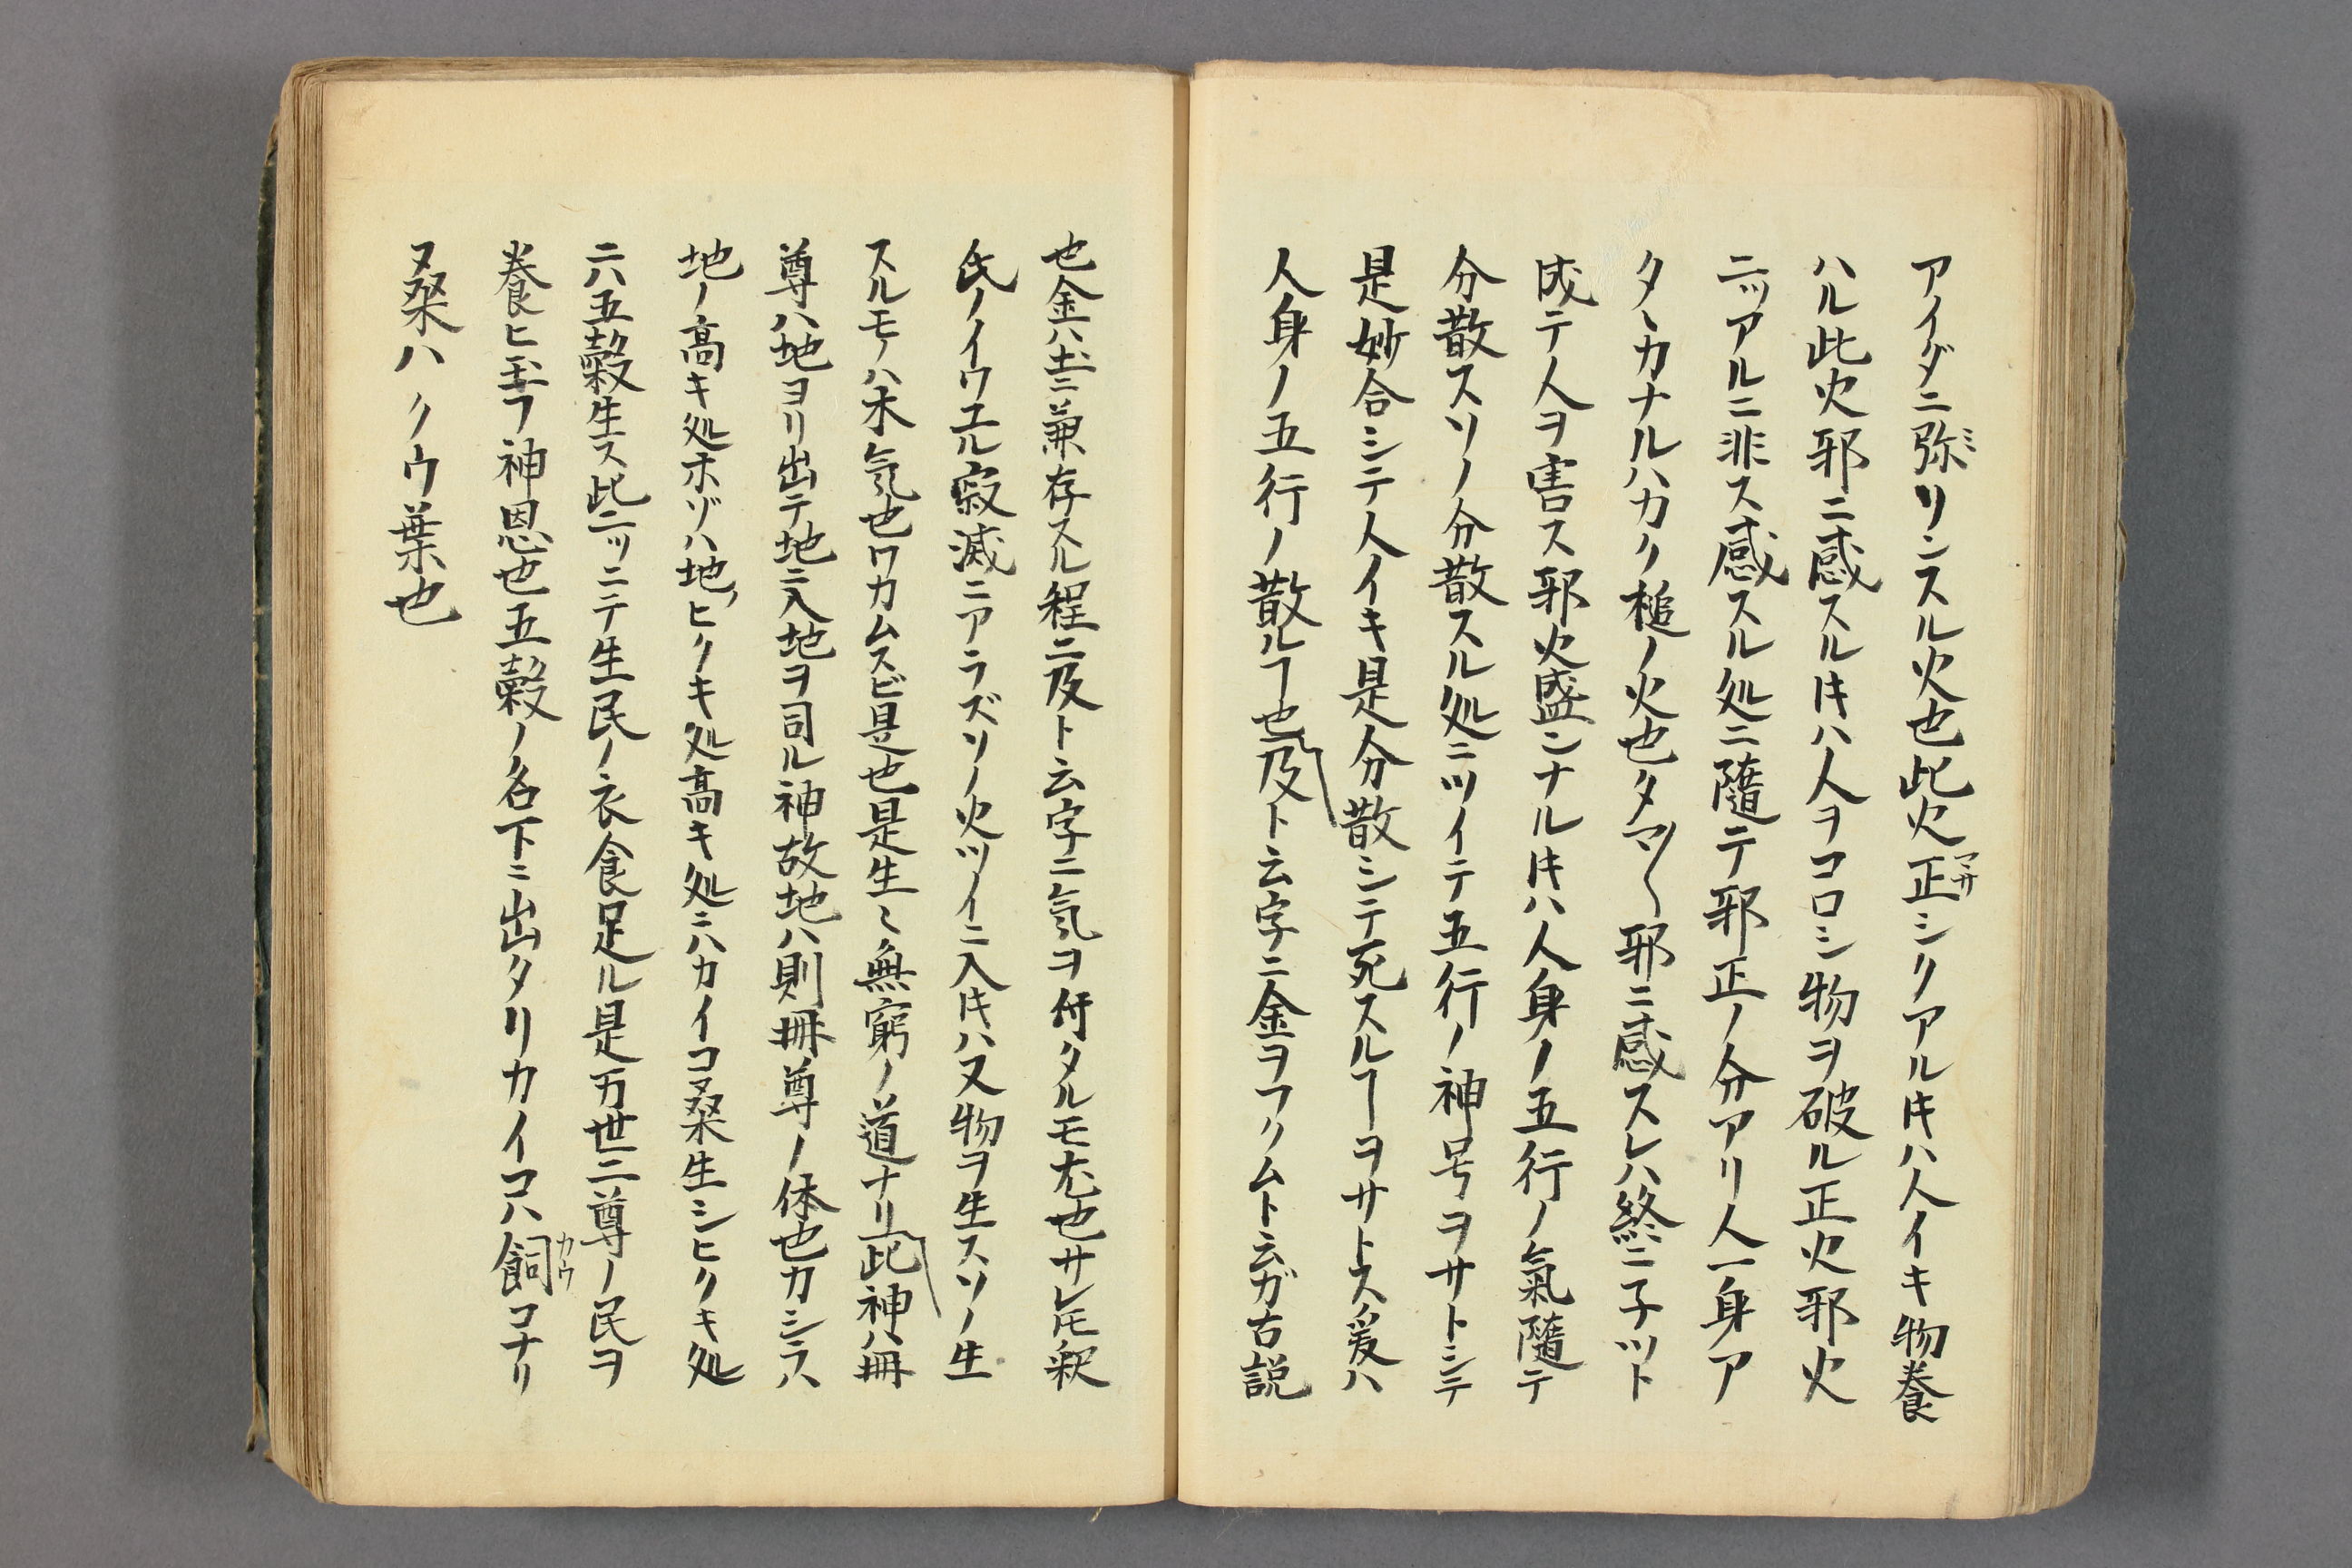 アイダニ弥リンスル火也此火正シクアル𪜈ハ人イキ物養
ハル此火邪ニ感スル𪜈ハ人ヲコロシ物ヲ破ル正火邪火
ニツアルニ非ス感スル処ニ隨テ邪正ノ分アリ人一身ア
タヽカナルハカク槌ノ火也タマ〱邪ニ感スレハ終ニ子ツト
成テ人ヲ害ス邪火盛ンナル𪜈ハ人身ノ五行ノ氣隨テ
分散スソノ分散スル処ニツイテ五行ノ神号ヲサトシテ
是妙合シテ人イキ是分散シテ死スルヿヲサトス爰ハ
人身ノ五行ノ散ルヿ也及ト云字ニ金ヲフクムト云ガ古説
也金ハ土ニ兼存スル程ニ及ト云字ニ気ヲ付タルモ尤也サレ𪜈釈
氏ノイワユル寂滅ニアラズソノ火ツイニ入𪜈ハ又物ヲ生スソノ生
スルモノハ木気也ワカムスビ是也是生〻無窮ノ道ナリ此神ハ冊
尊ハ地ヨリ出テ地ニ入地ヲ司ル神故地ハ則冊尊ノ体也カシラハ
地ノ高キ処ホゾハ地ノヒクキ処高キ処ニハカイコ桑生シヒクキ処
ニハ五穀生ス此ニツニテ生民ノ衣食足ル是万世二尊ノ民ヲ
養ヒ玉フ神恩也五穀ノ名下ニ出タリカイコハ飼コナリ
桑ハクウ葉也